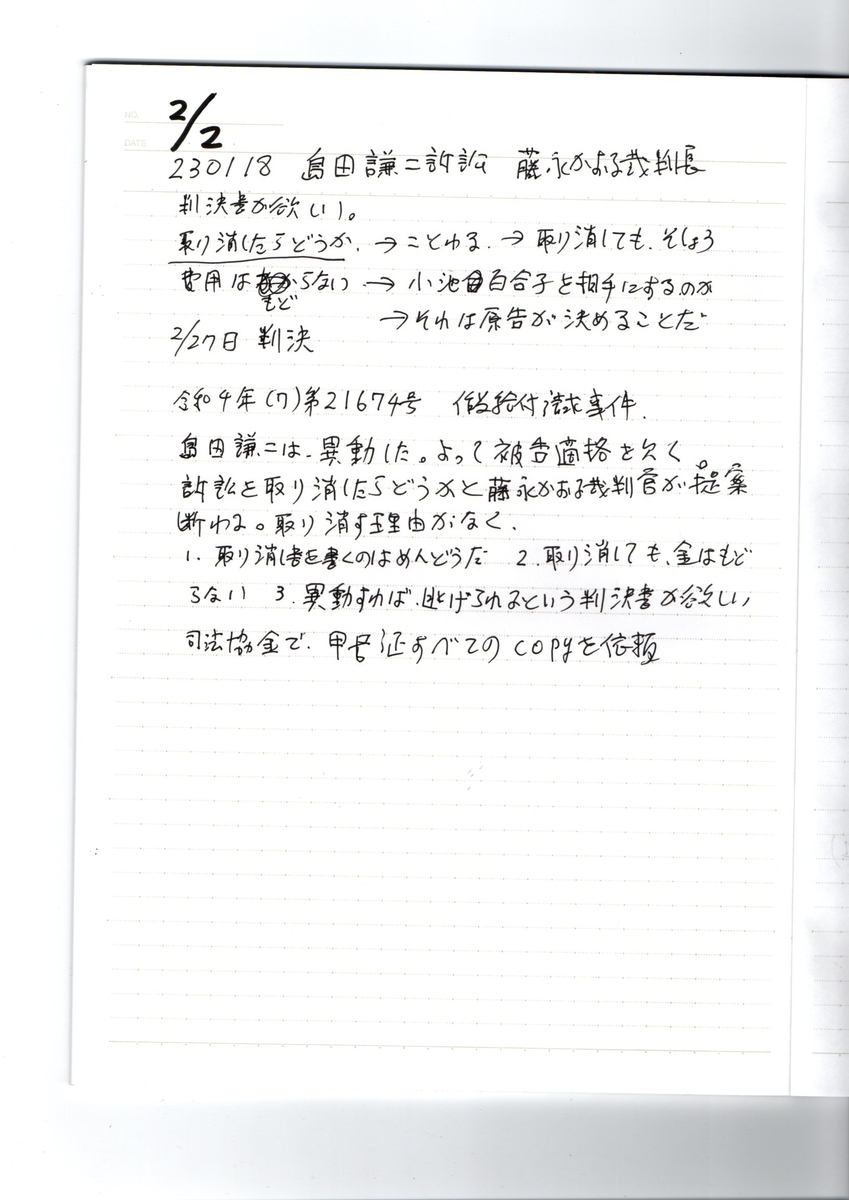 NO.
2/2
DATE
230118 島田謙二訴訟 藤永かおる裁判長
判決書が欲しい。
取り消したらどうか. → ことわる. → 取り消しても.そしょう
費用はもどらない → 小池百合子を相手にするのか
→ それは原告が決めることだ
2/27日 判決
令和4年(ワ)第21674号 仮給付請求事件.
島田謙二は.異動した。よって被告適格を欠く
訴訟を取り消したらどうかと藤永かおる裁判官が提案
断わる。取り消す理由がなく.
1. 取り消し書を書くのはめんどうだ 2. 取り消しても、金はもど
らない 3. 異動すれば.逃げられるという判決書が欲しい
司法協会で. 甲号証すべてのcopyを依頼